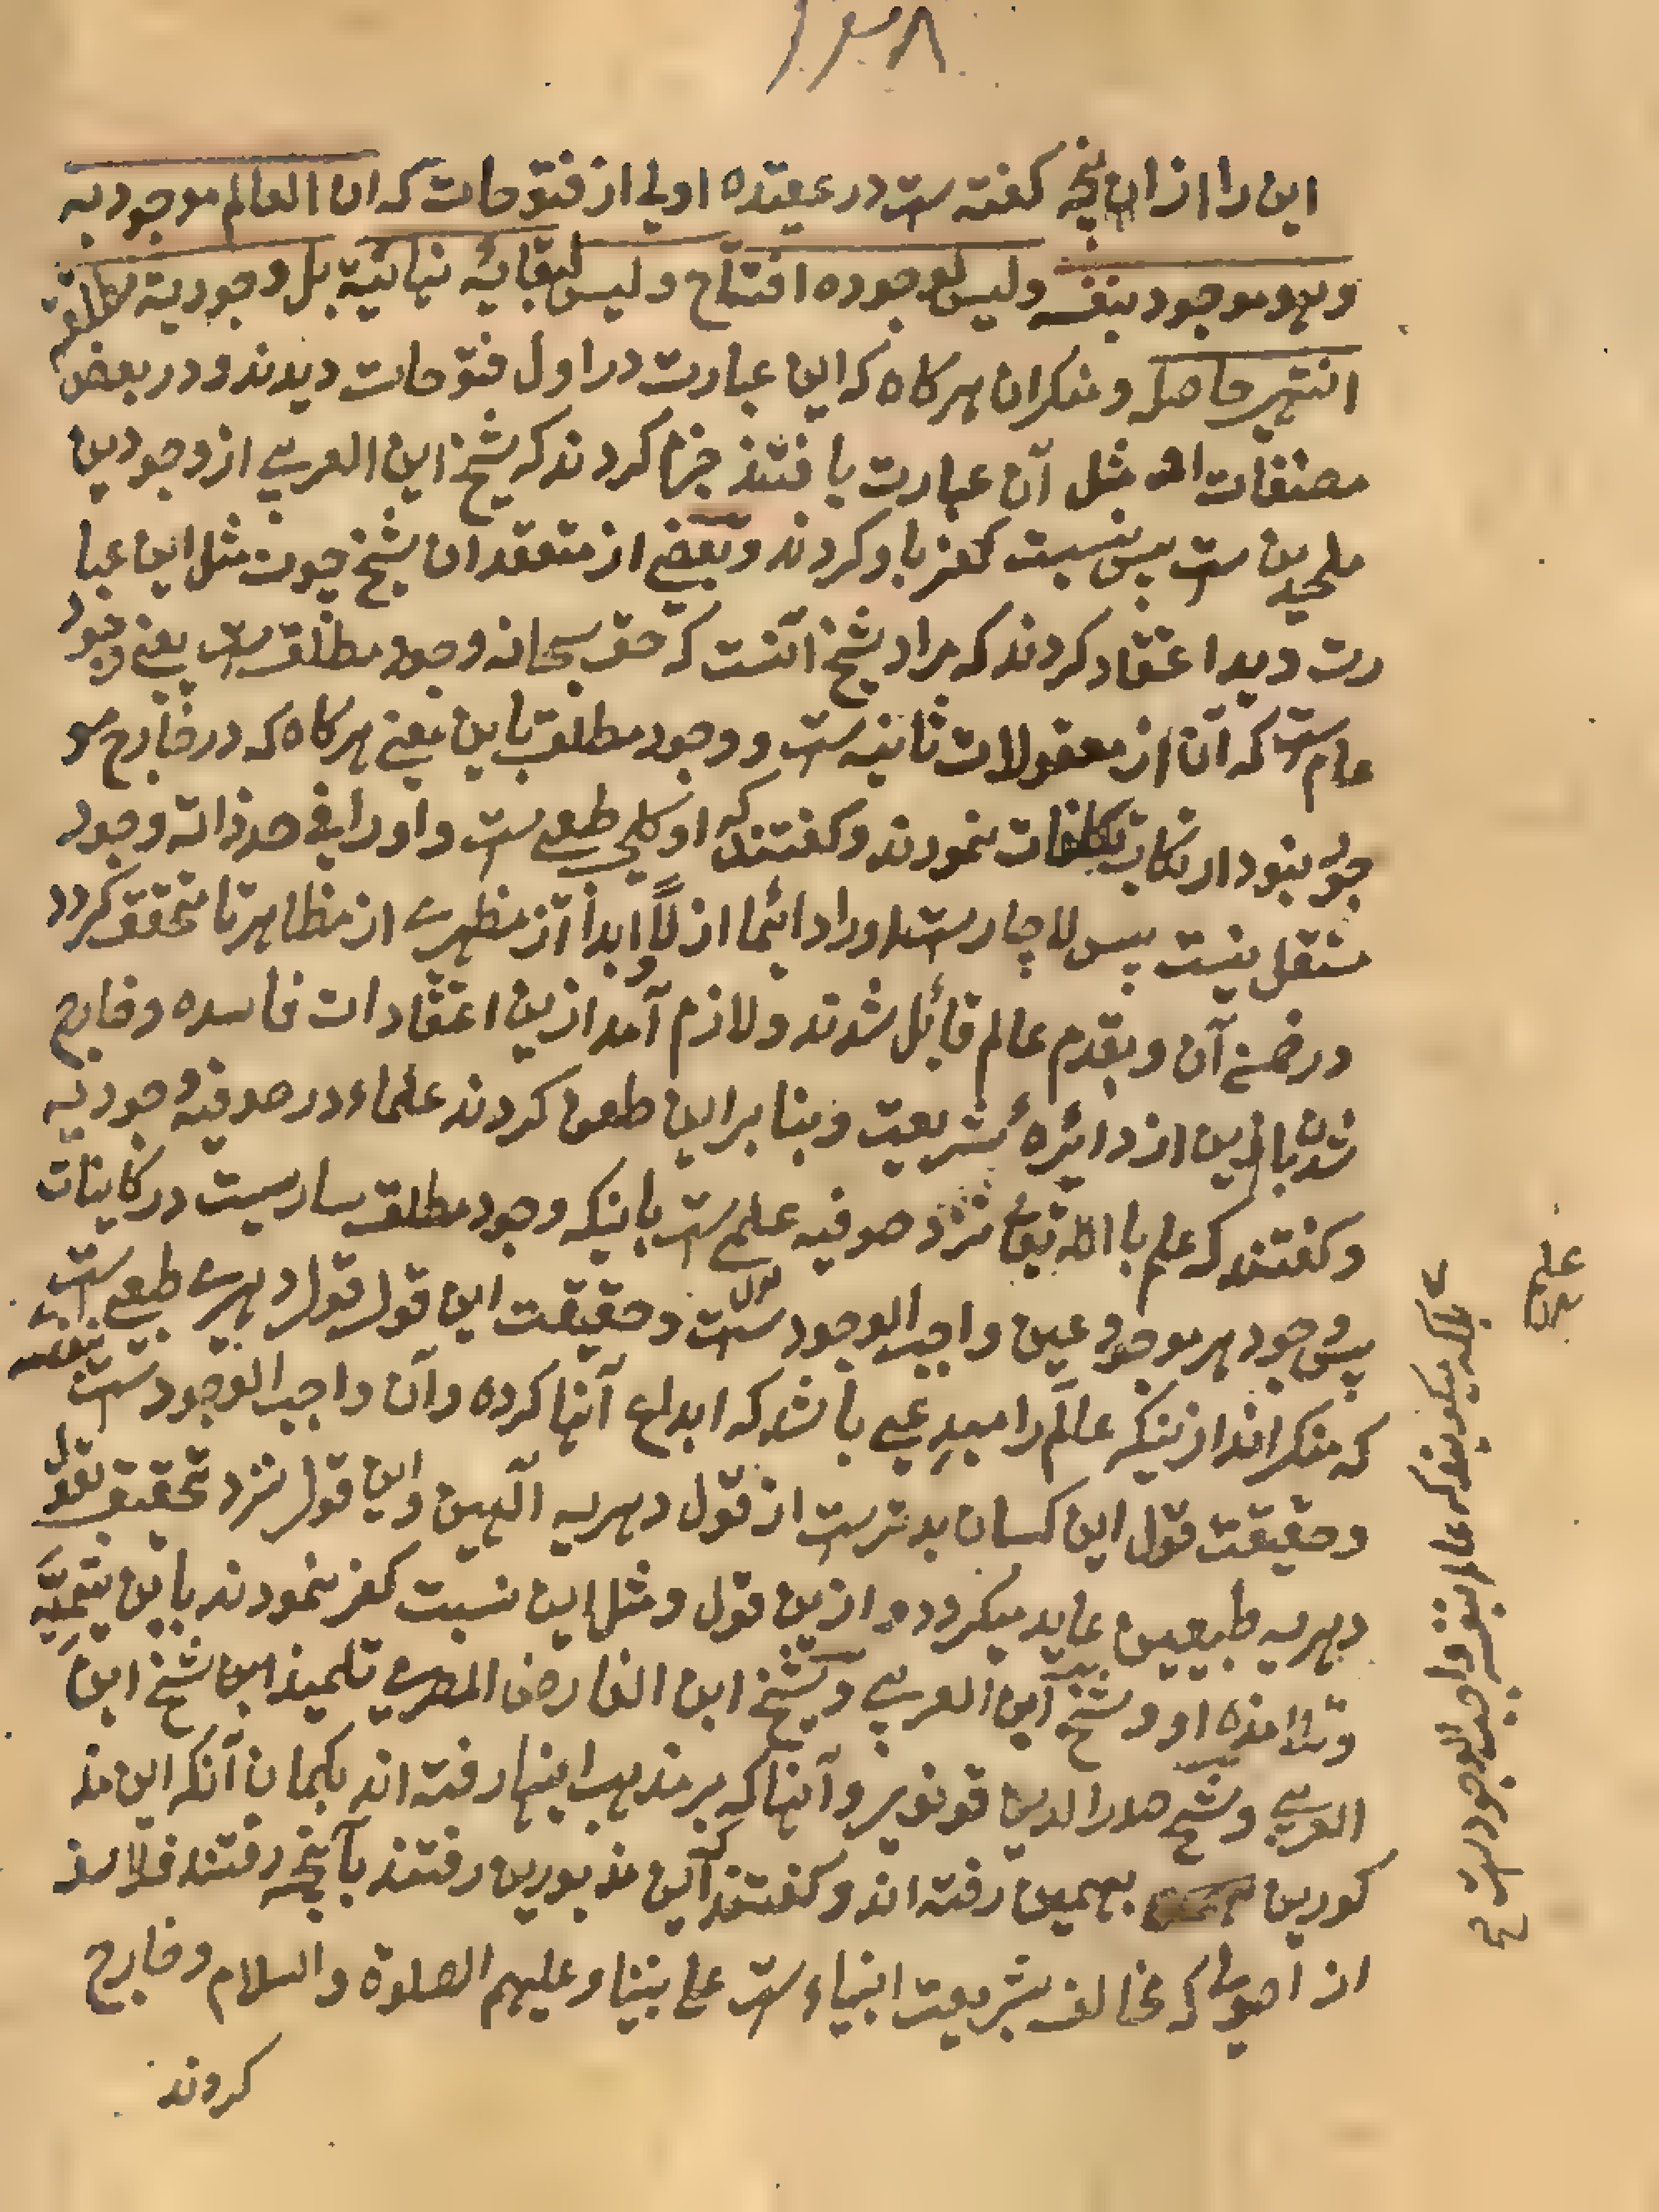 ۱۳۸
این را از آنچه گفته ست در عقیده اولی از فتوحات که ان العالم موجود به
وهو موجود بنفسه ولیس لوجوده افتتاح ولیس لبقائه نهائیة بل وجودیة مطلقة
انتهی حاصله و منکران هرکاه که این عبارت در اول فتوحات دیدند و در بعض
مصنفات او مثل آن عبارت یافتند جزم کردند که شیخ ابن العربی از وجودین
ملحدین ست پس نسبت کفر باو کردند و بعضی از معتقدان شیخ چون مثل این عبا
رت دید اعتقاد کردند که مراد شیخ آنست که حق سبحانه وجود مطلق ست یعنی وجود
عام ست که آن از معقولات ثانیه ست و وجود مطلق باین معنی هرکاه که در خارج مو
جود نبود ارتکاب تکلفات نمودند و گفتند که او کلی طبعی ست و او را فی حد ذاته وجود
مستقل نیست پس لاچار ست او را دائما ازلًا و ابدًا از مظهری از مظاهر تا متحقق گردد
در ضمن آن و بقدم عالم قائل شدند و لازم آمد ازین اعتقادات فاسده و خارج
شدن باین از دائره شریعت و بنا براین طعن کردند علماء در صوفیه وجودیه
و گفتند که علم باالله تعالی نزد صوفیه علم ست باینکه وجود مطلق ساریست در کاینات
پس وجود هر موجود عین واجب الوجود ست و حقیقت این قول قول دهری طبعی ست
که منکر اند ازینکه عالَم را مبدِعی باشد که ابداع آنها کرده و آن واجب الوجود ست
و حقیقت قول این کسان بدتر ست از قول دهریه الٓهین و این قول نزد تحقیق بقول
دهریه طبیعیین عاید میکردد و ازین قول و مثل این نسبت کفر نمودند باین تیمیَّه
و تلامذه او و شیخ ابن العربی و شیخ ابن الفارض المصری تلمیذ این شیخ ابن
العربی و شیخ صدر الدین قونوی و آنها که بر مذهب اینها رفته اند بکمان آنکه این مذ
کورین بهمین رفته اند و گفتند که این مذبورین رفتند بآنچه رفتند فلاسفه
از اصول که مخالف شریعت انبیاء ست علی نبینا و علیهم الصلوة والسلام و خارج
کردند
بلکه میکویند که عالم بنفسه واجب الوجود است
علم